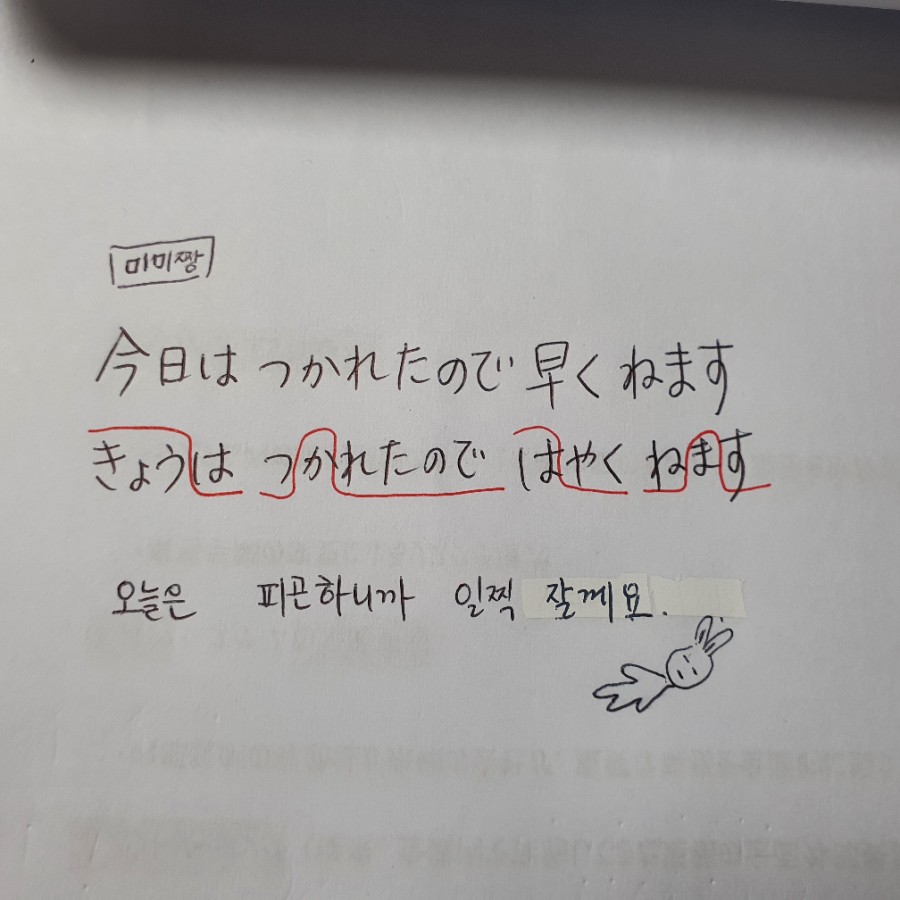 미미짱
今日は つかれたので 早く ねます
きょうは つかれたので はやく ねます
오늘은 피곤하니까 일찍 잘께요.